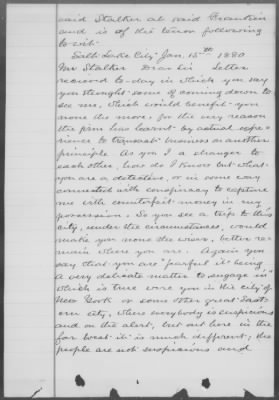 said Stalker at said Franklin
and is of the tenor following
to wit
Salt Lake City Jan, 15th 1880
Mr Stalker Dear Sir Letter
received to-day in which you say
you thought some of coming down to
see me, which would benefit you
none the more, for the very reason
the firm has learnt by actual expe-
rience to transact business on another
principle As you & I a stranger to
each other, how do I know but what
you are a detective, or in some way
connected with conspiracy to capture
me with counterfeit money in my
possession. So you see a trip to this
city, under the circumstances, would
make you none the wiser, better re-
main where you are. Again you
say that you are "fearful it being
a very delicate matter to engage in"
which is true were you in the city of
New York or some other great East-
ern city, where everybody is suspicious
and on the alert, but out here in the
far West it is much different; the
people are not suspicious and